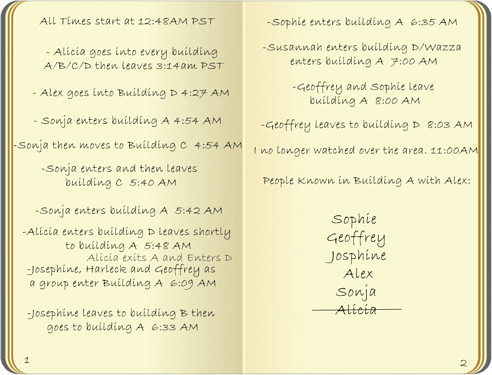 All Times start at 12:48AM PST
- Alicia goes into every building
A/B/C/D then leaves 3:14am PST
- Alex goes into Building D 4:27 AM
- Sonja enters building A 4:54 AM
-Sonja then moves to Building C 4:54 AM
-Sonja enters and then leaves
building C 5:40 AM
-Sonja enters building A 5:42 AM
-Alicia enters building D leaves shortly
to building A 5:48 AM
Alicia exits A and Enters D
-Josephine, Harleck and Geoffrey as
a group enter Building A 6:09 AM
-Josephine leaves to building B then
goes to building A 6:33 AM
1
-Sophie enters building A 6:35 AM
-Susannah enters building D/Wazza
enters building A 7:00 AM
-Geoffrey and Sophie leave
building A 8:00 AM
-Geoffrey leaves to building D 8:03 AM
I no longer watched over the area. 11:00AM
People Known in Building A with Alex:
Sophie
Geoffrey
Josphine
Alex
Sonja
Alicia
2